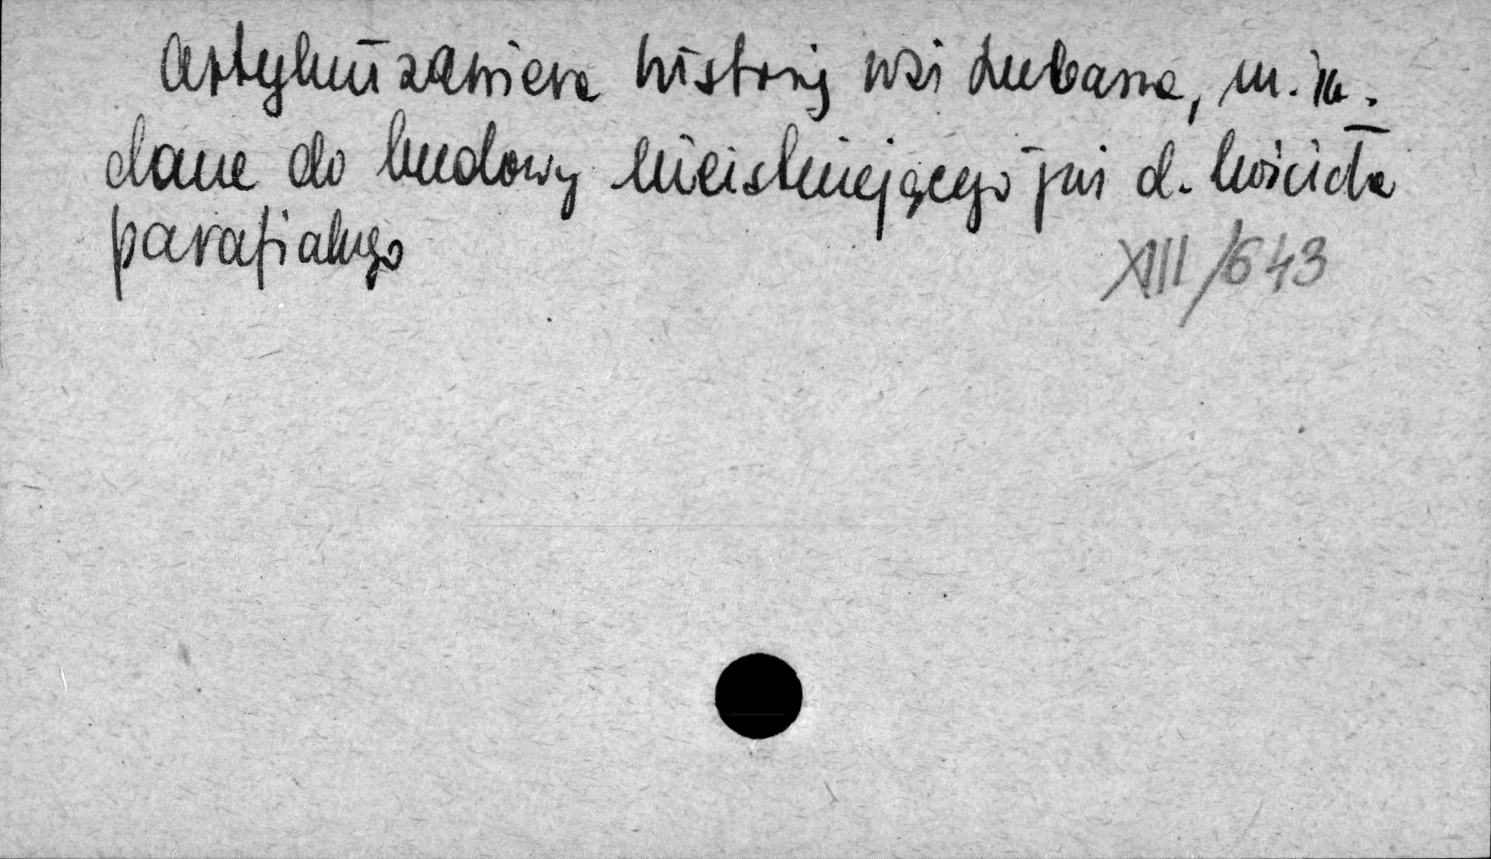 Artykuł zawiera historię wsi Lubasza, m. in.
dane do budowy nieistniejącego już d. kościoła
parafialnego
XIII/643